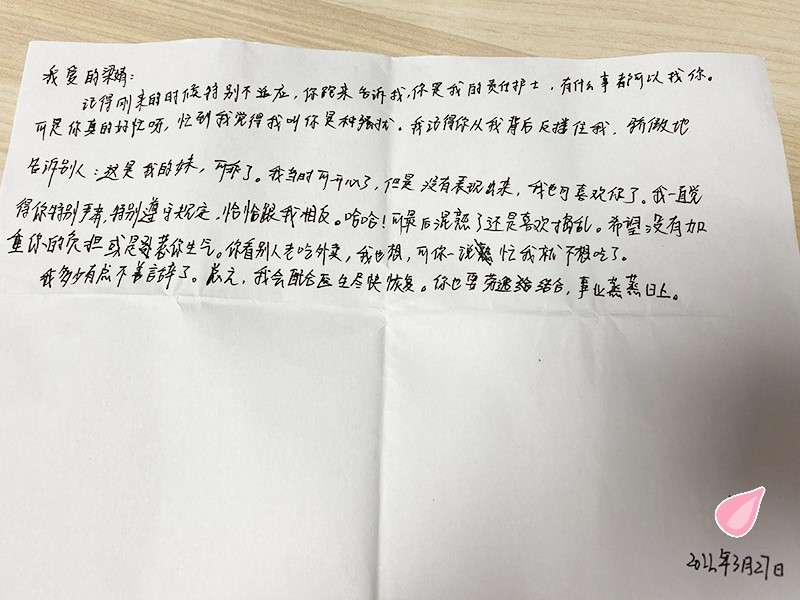 我爱的梁婧：
记得刚来的时候特别不适应，你跑来告诉我，你是我的责任护士，有什么事都可以找你。
可是你真的好忙呀，忙到我觉得我叫你是种骚扰。我记得你从我背后反搂住我，骄傲地
告诉别人：这是我的妹，可乖了。我当时可开心了，但是没有表现出来，我也可喜欢你了。我一直觉
得你特别严肃，特别遵守规定，恰恰跟我相反。哈哈！可最后混熟了还是喜欢捣乱。希望没有加
重你的负担或是惹你生气。你看别人老吃外卖，我也想，可你一说 忙我就不想吃了。
我多少有点不善言辞了。总之，我会配合医生尽快恢复。你也要劳逸结合，事业蒸蒸日上。
2022年3月27日